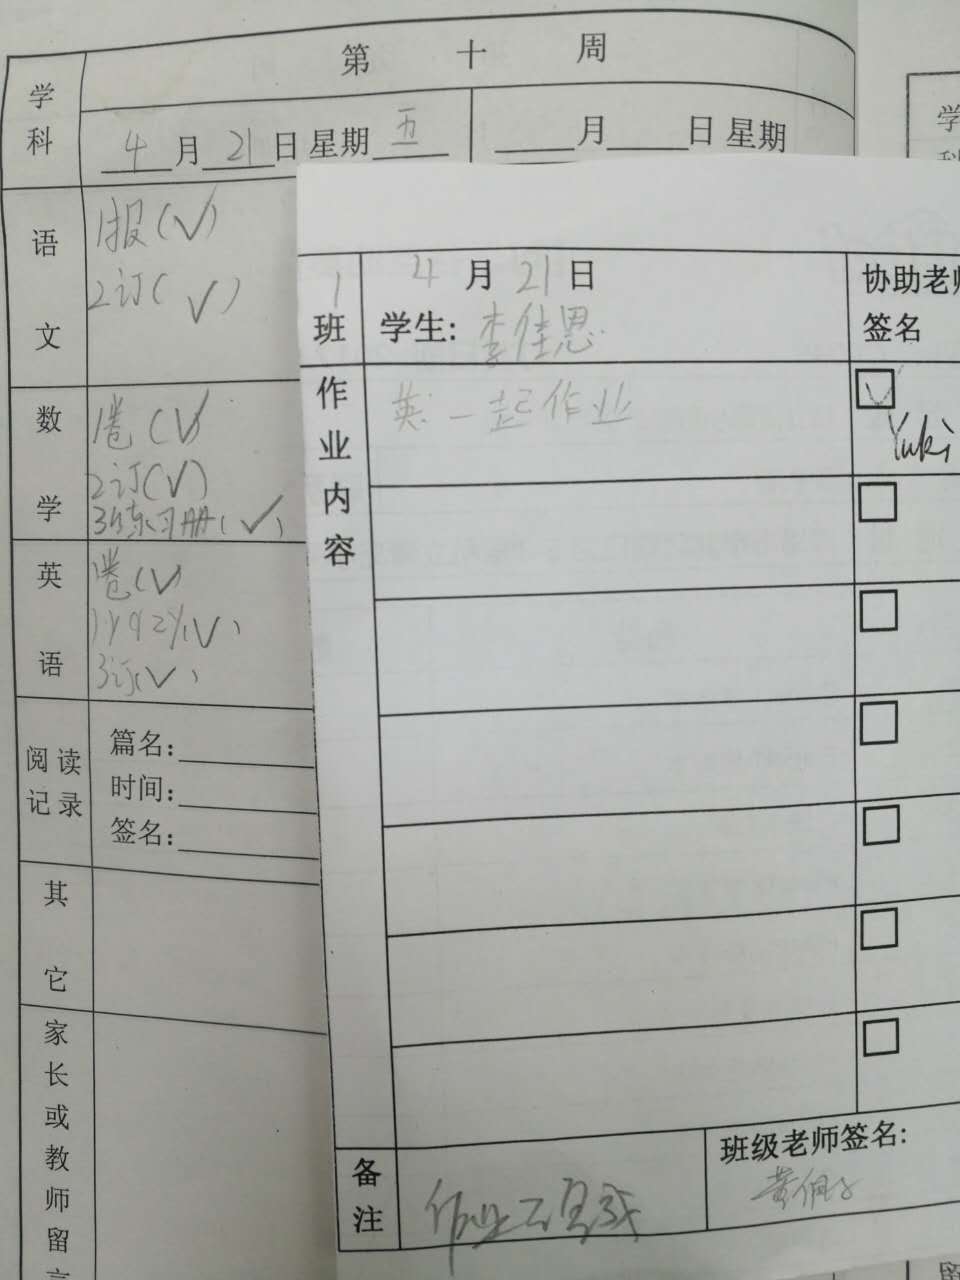 第 十 周
学科
4月21日 星期五
月 日 星期
语文
1报(✓)
2订(✓)
数学
1卷(✓)
2订(✓)
3练习册(✓)
英语
卷(✓)
3订(✓)
阅读记录
篇名:
时间:
签名:
其它
家长或教师留言
1班
4月21日
学生: 李佳恩
协助老师签名
作业内容
英:一起作业
✓
Yuki
备注
作业已完成
班级老师签名:
学